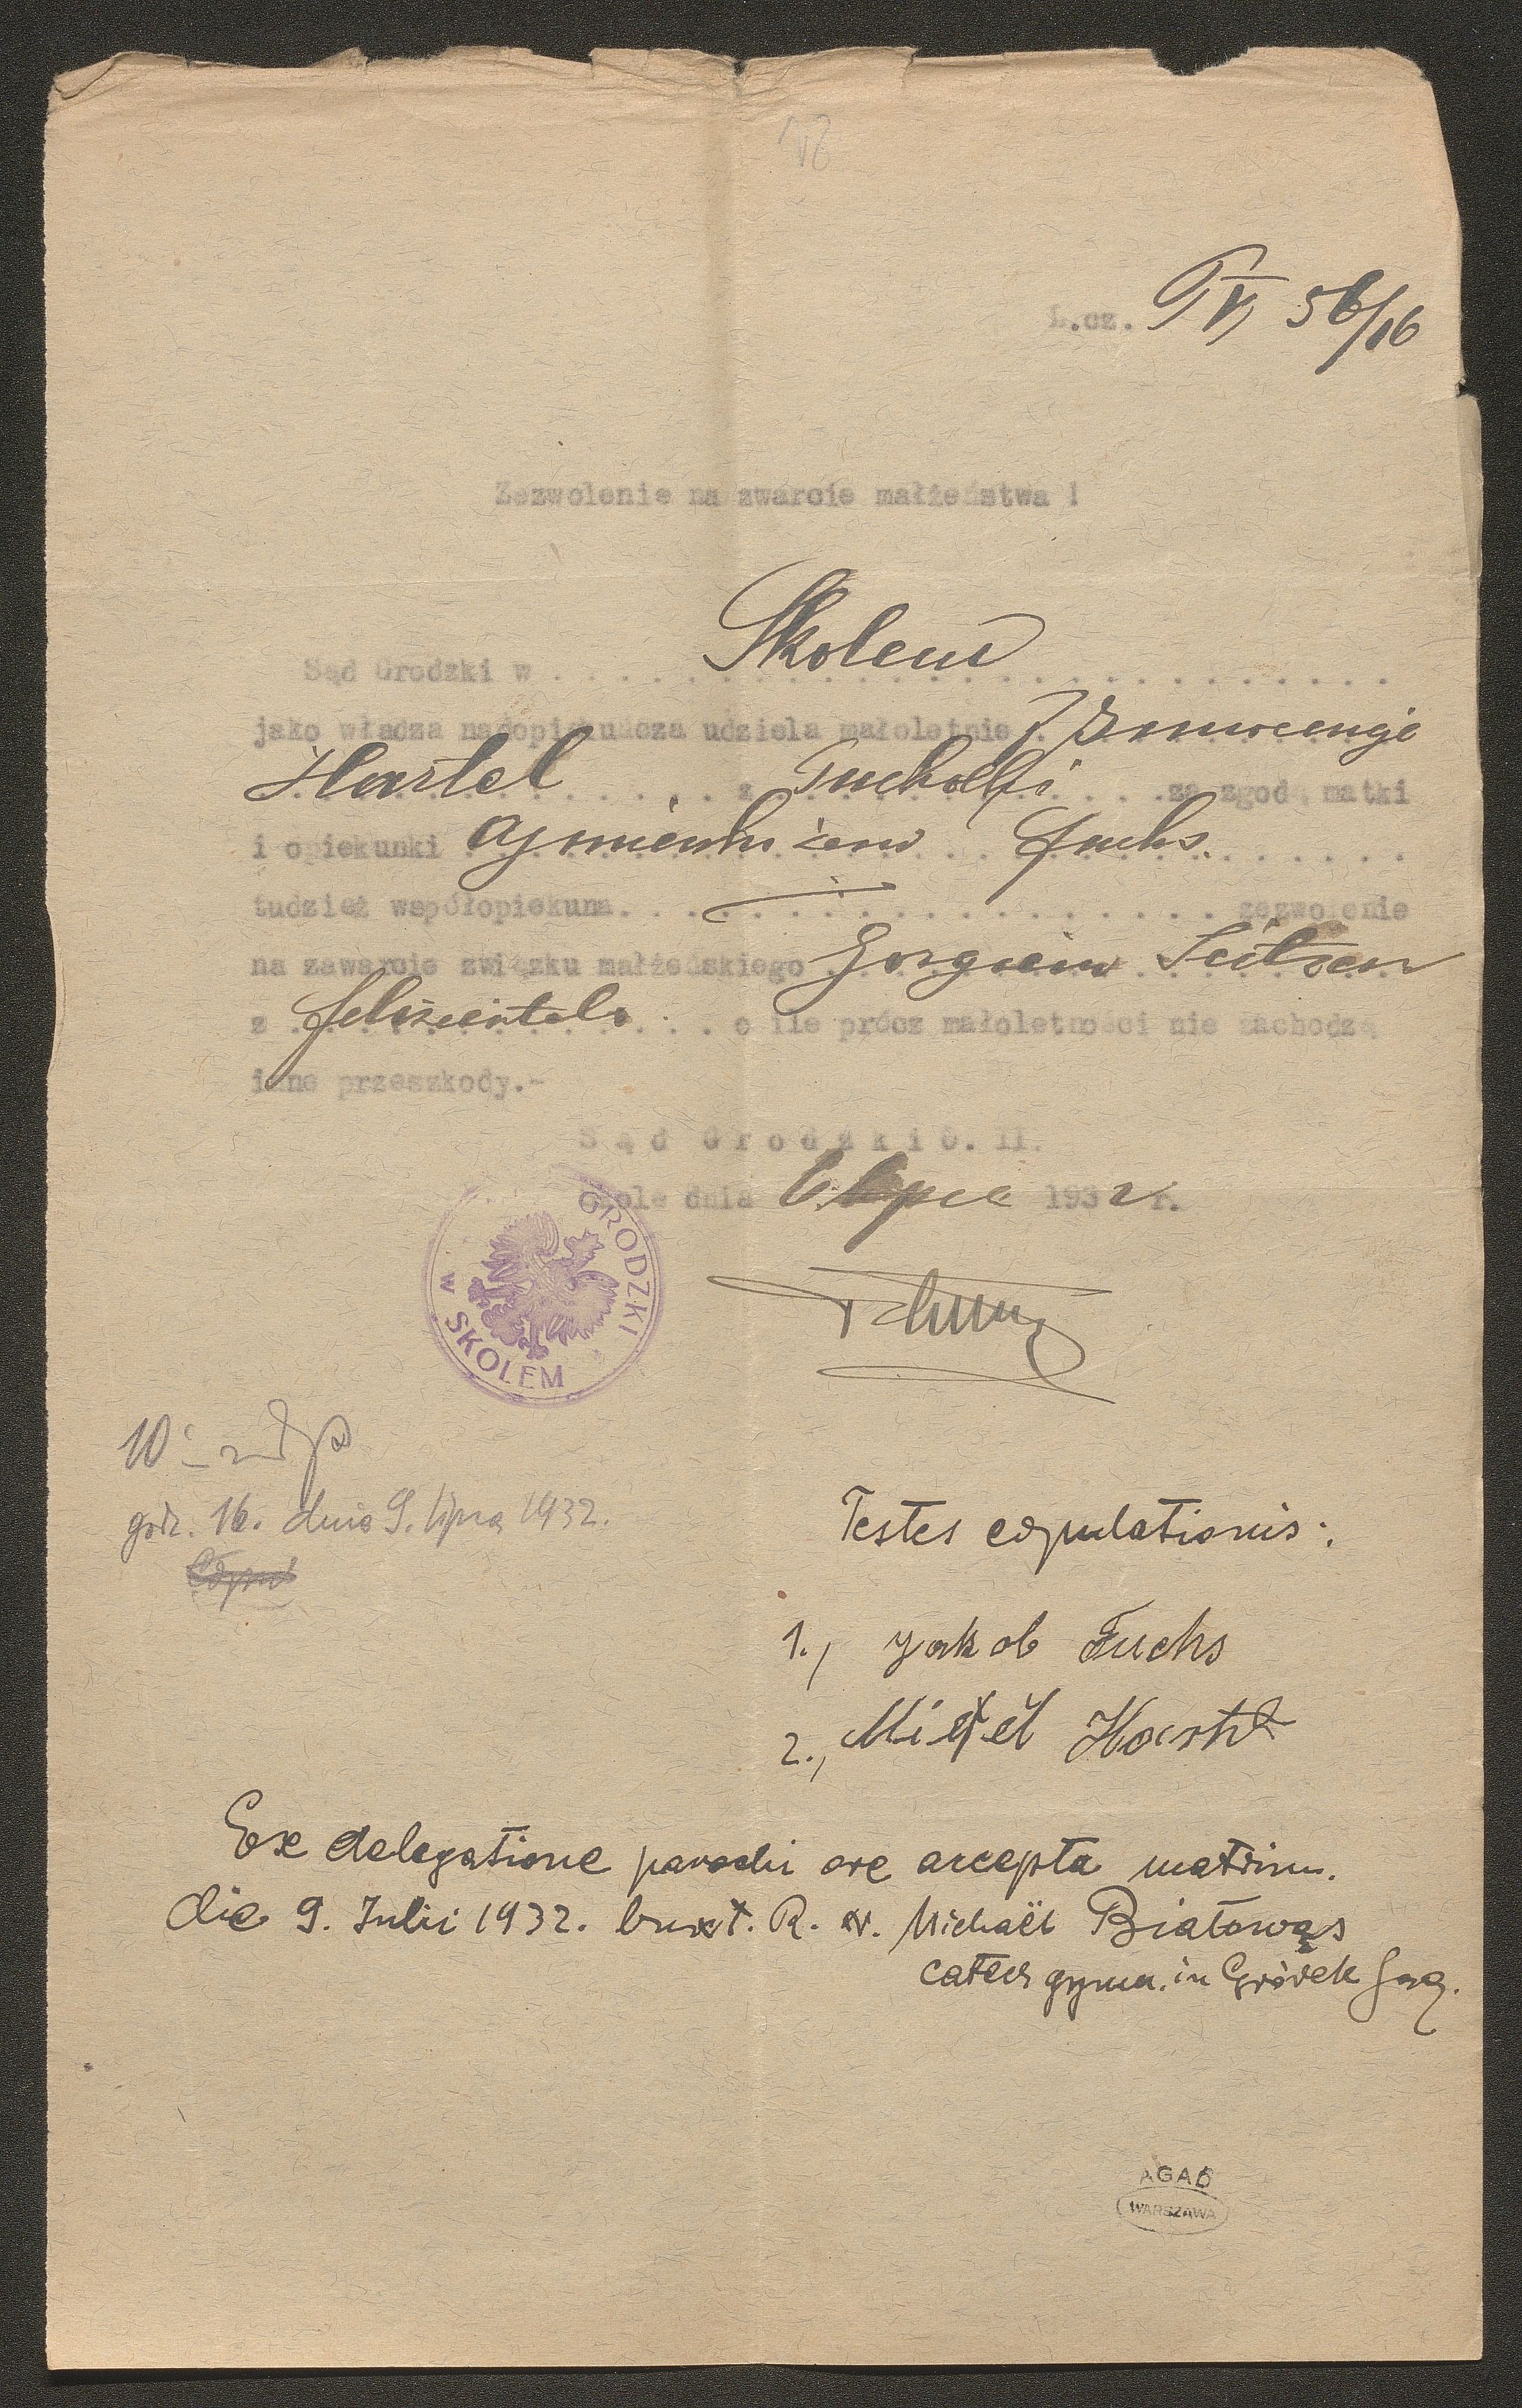 L.cz. 56/16
Zezwolenie na zwarcie małżeństwa !
Sąd Grodzki w Skolem
jako władza nadopiekuńcza udziela małoletnie
Hartel z Tucholki za zgodą matki
i opiekunki Fuchs.
tudzież współopiekuna zezwolenie
na zawarcie związku małżeńskiego
z Felizientalu o ile prócz małoletności nie zachodzą
inne przeszkody.-
Sąd Grodzki O. II.
Skole dnia 6 lipca 1932 r.
GRODZKI W SKOLEM
godz. 16. dnia 9. lipca 1932.
Testes copulationis:
1., Jakob Fuchs
2., Hartel
Ex delegatione parochi ore accepta matrim.
die 9. Julii 1932. R. Michaël Białowąs
catech gymn. in Gródek Jag.
AGAD
WARSZAWA